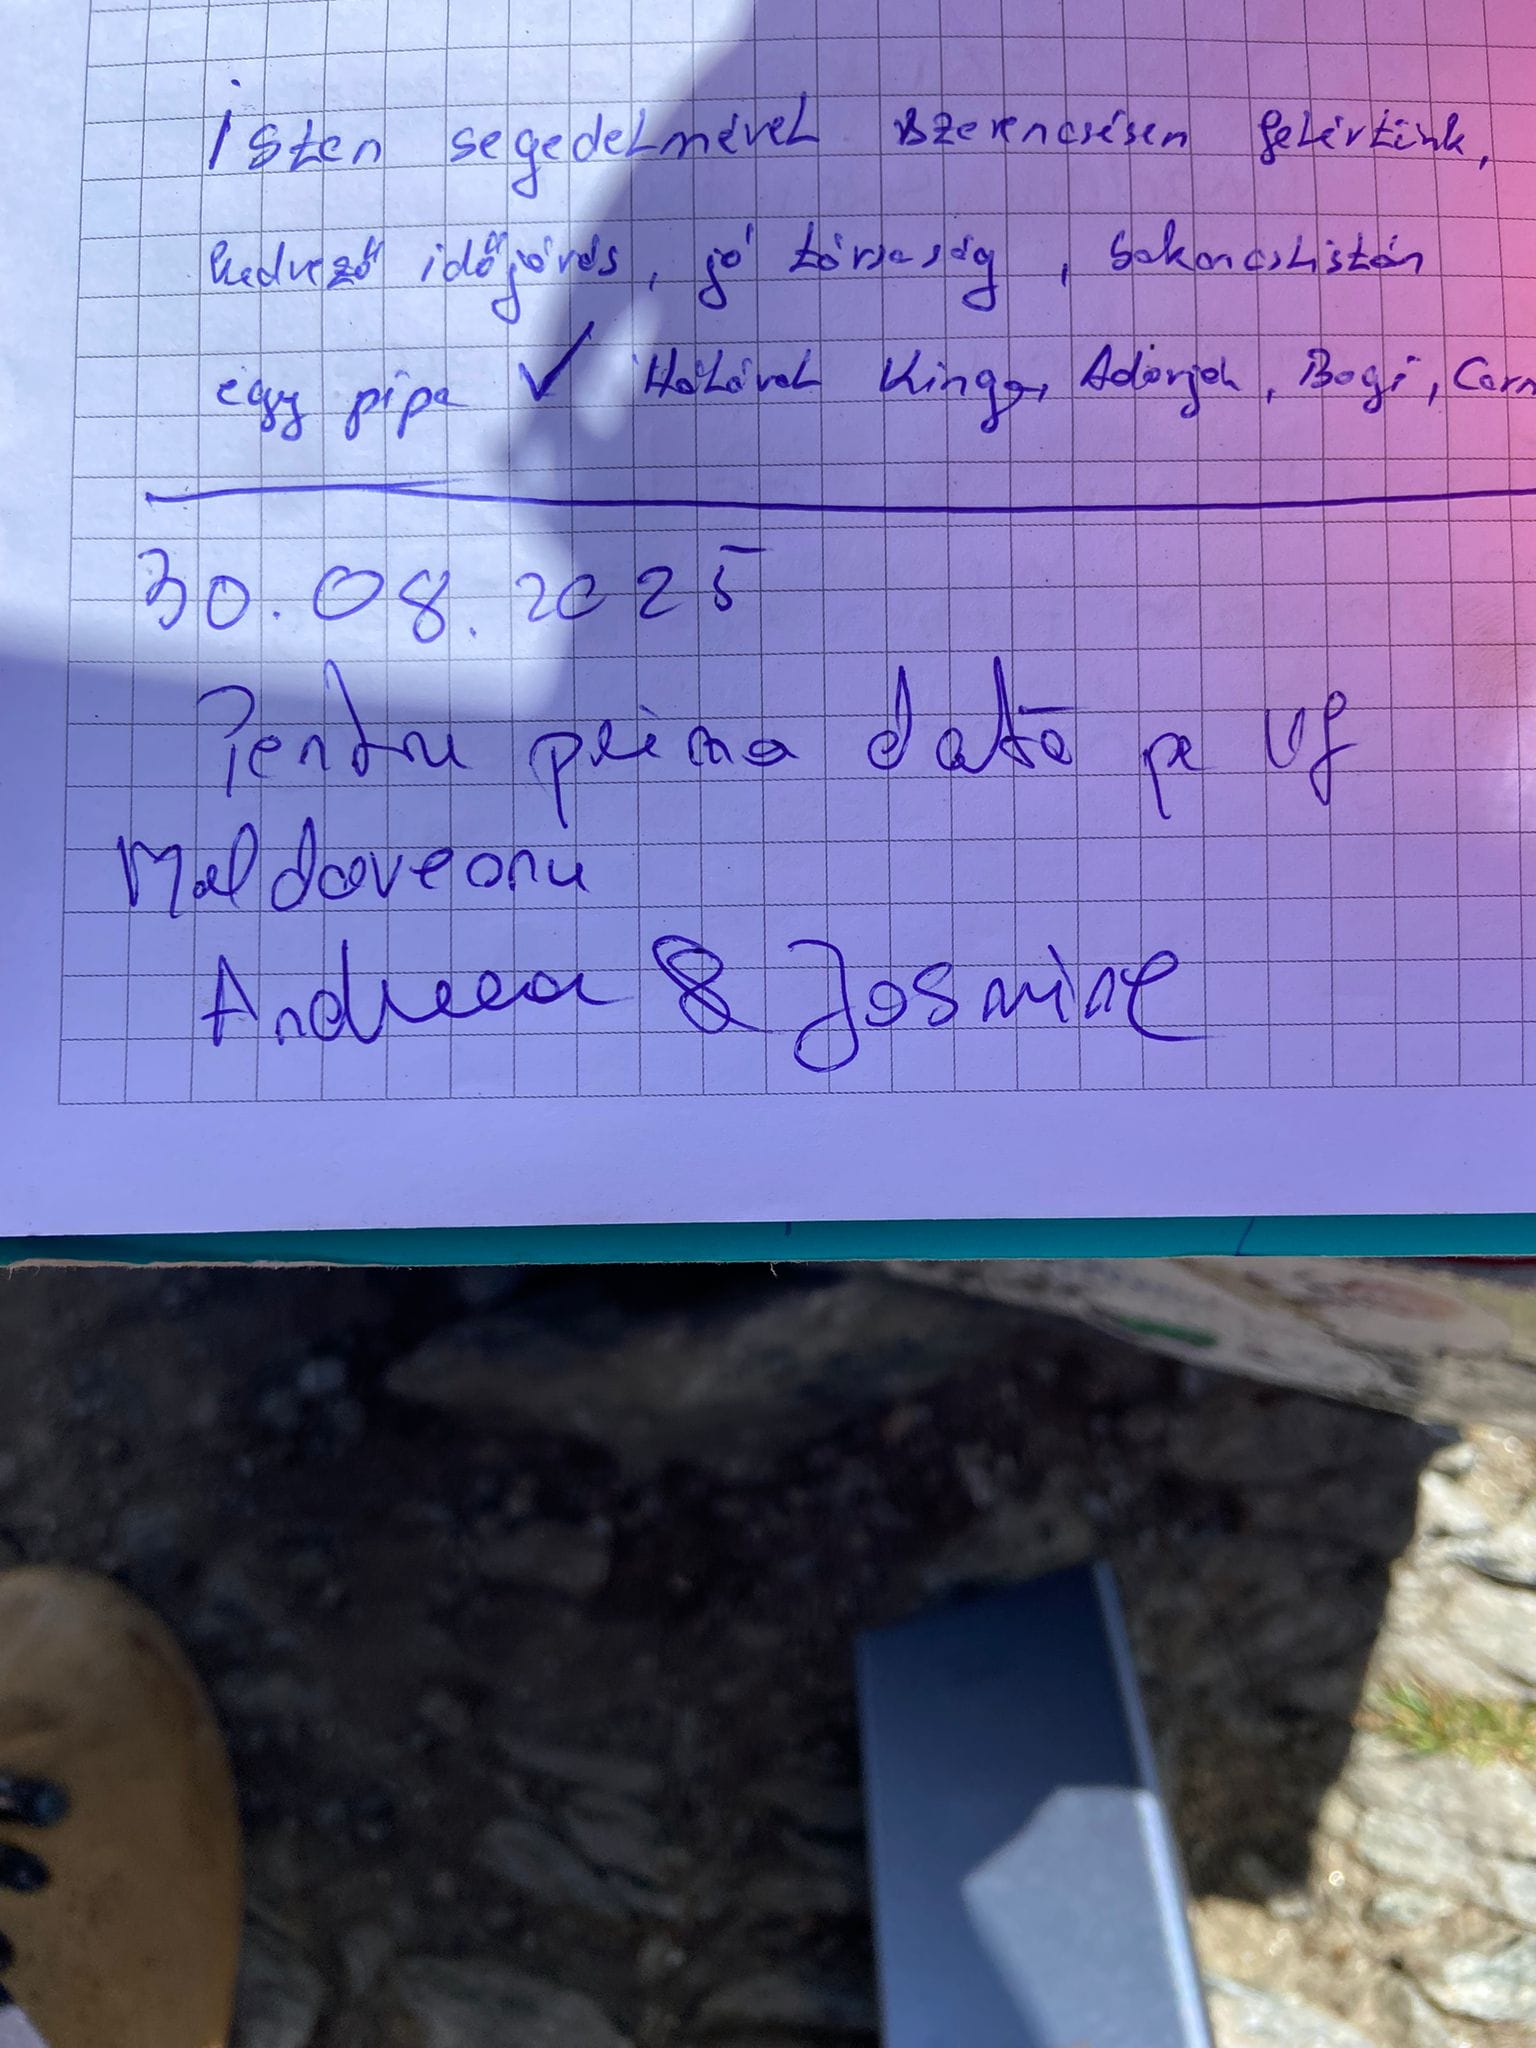 Isten segedelmével szerencsésen felértünk,
kedvező időjárás, jó társaság, bakancslistán
egy pipa ✓ Hálával Kinga, Adorján, Bogi,
30.08.2025
Pentru prima dată pe Vf
Moldoveanu
Andreea & Josmine